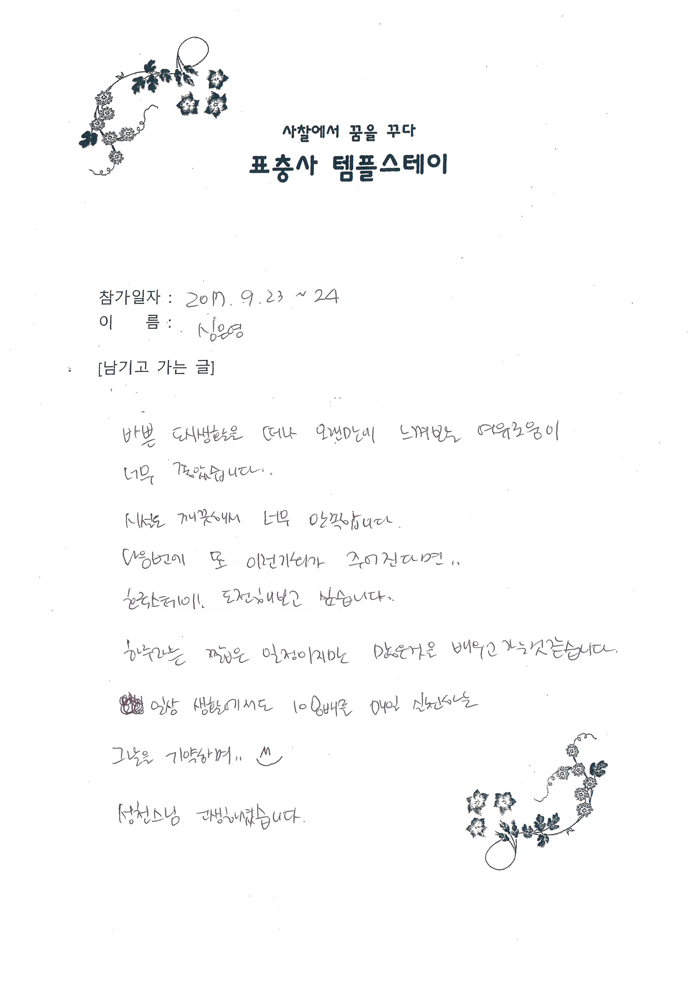 사찰에서 꿈을 꾸다
표충사 템플스테이
참가일자 : 2017. 9. 23 ~ 24
이 름 : 심은영
[남기고 가는 글]
바쁜 도시생활을 떠나 오랜만에 느껴보는 여유로움이
너무 좋았습니다..
시설도 깨끗해서 너무 만족합니다.
다음번에 또 이런기회가 주어진다면..
한국스테이! 도전해보고 싶습니다..
하루라는 짧은 일정이지만 많은것을 배우고 가는것같습니다.
일상 생활에서도 108배를 매일 실천하는
그날을 기약하며..
성천스님 고생하셨습니다.